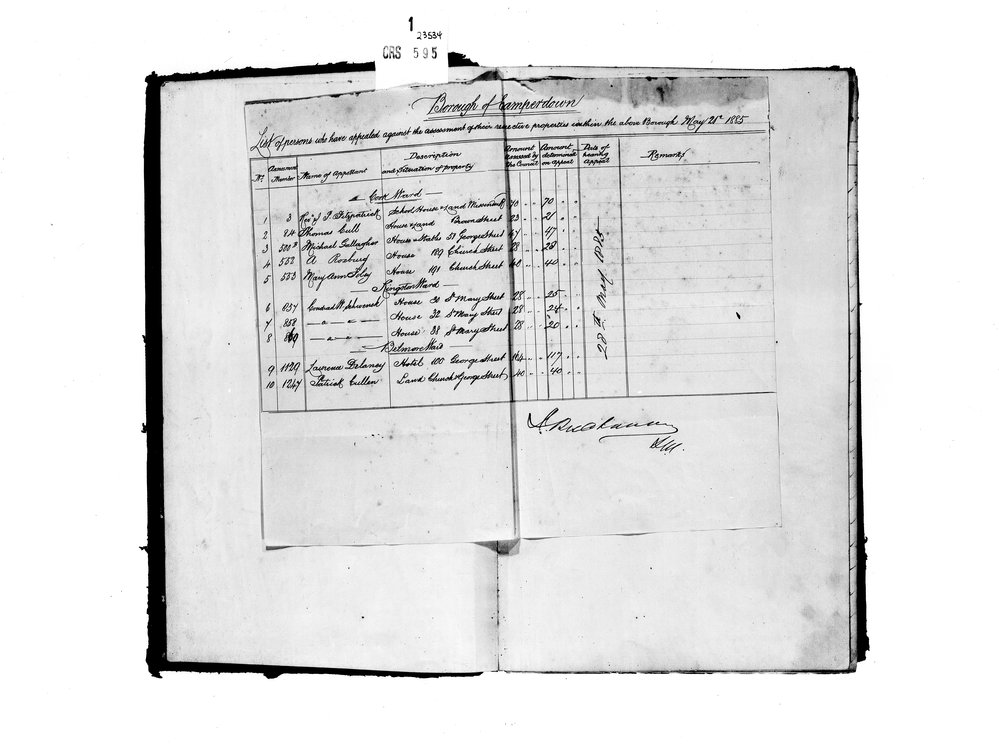 1
23534
CRS 595
Borough of Camperdown
List of persons who have appealed against the assessment of their respective properties within the above Borough May 21st 1885
No. Assessment Number Name of Appellant Description and Situation of property Amount assessed by the Council Amount determined on Appeal Date of hearing Appeal Remarks
Cook Ward
1 3 Revd J. J. Fitzpatrick School House & Land 70 " " 70 " "
2 84 Thomas Cull House & Land Brown Street 23 " " 21 " "
3 Michael Gallagher House & Stables 51 George Street 47 " " 47 " "
4 552 A Roxburg House 189 Church Street 28 " " 28 " "
5 553 Mary Ann Foley House 191 Church Street 40 " " 40 " "
28th May 1885
Kingston Ward
6 857 Conrad W. House 30 St Mary Street 28 " " 25 " "
7 858 " " " House 32 St Mary Street 28 " " 24 " "
8 " " " House 38 St Mary Street 28 " " 20 " "
Belmore Ward
9 1129 Laurence Delaney Hotel 100 George Street 164 " " 117 " "
10 1247 Patrick Cullen Land Church & George Street 40 " " 40 " "
Buchanan